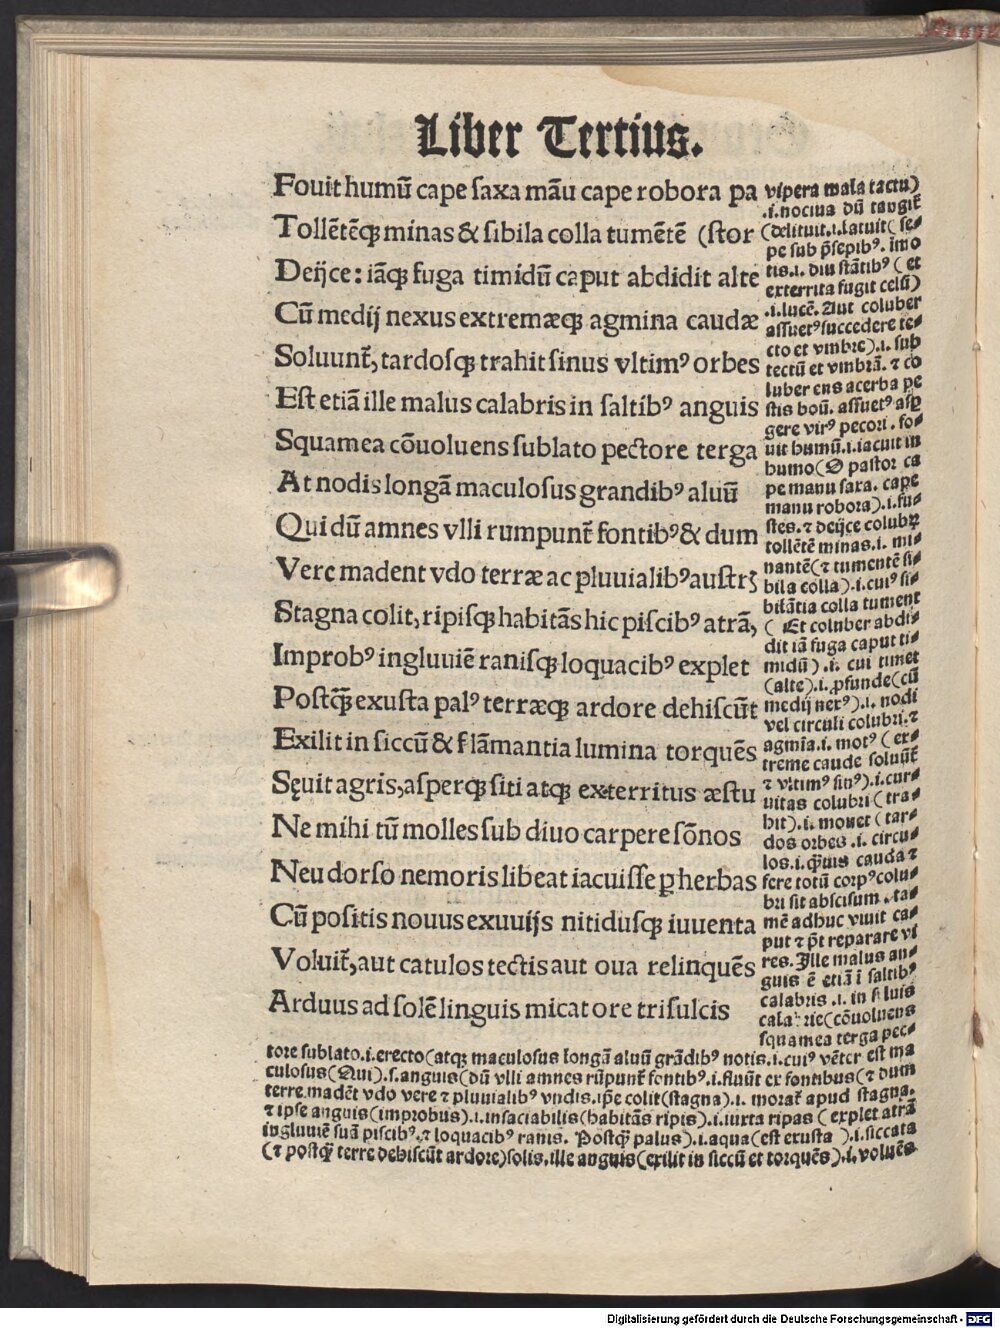 Liber Tertius.
Fouit humū cape saxa māu cape robora pa
Tollētēq; minas & sibila colla tumētē (stor
Deijce: iāq; fuga timidū caput abdidit alte
Cū medij nexus extremæq; agmina caudæ
Soluunt̄, tardosq; trahit sinus vltimꝰ orbes
Est etiā ille malus calabris in saltibꝰ anguis
Squamea cōuoluens sublato pectore terga
At nodis longā maculosus grandibꝰ aluū
Qui dū amnes vlli rumpunt̄ fontibꝰ & dum
Vere madent vdo terræ ac pluuialibꝰ austrꝫ
Stagna colit, ripisq; habitās hic piscibꝰ atrā,
Improbꝰ ingluuiē ranisq; loquacibꝰ explet
Postq̄; exusta palꝰ terræq; ardore dehiscūt
Exilit in siccū & flāmantia lumina torquēs
Sęuit agris, asperq; siti atq; exterritus æstu
Ne mihi tū molles sub diuo carpere sōnos
Neu dorso nemoris libeat iacuisse ꝑ herbas
Cū positis nouus exuuijs nitidusq; iuuenta
Voluit̄, aut catulos tectis aut oua relinquēs
Arduus ad solē linguis micat ore trisulcis
vipera mala tactu)
.i. nociua dū tangit̄
(delituit.i.latuit( se⸗
pe sub p̄sepibꝰ. īmo
tis.i. diu stātibꝰ ( et
exterrita fugit celū)
.i.lucē. Aut coluber
assuetꝰ succedere te⸗
cto et vmbre).i. sub
tectū et vmbrā. ⁊ co
luber ens acerba pe
stis boū. assuetꝰ asp
gere virꝰ pecori. fo⸗
uit humū.i.iacuit in
humo(O pastor ca
pe manu saxa. cape
manu robora).i.fu⸗
stes. ⁊ deijce colubꝝ
tollētē minas.i. mi⸗
nantē(⁊ tumentē si⸗
bila colla).i.cuiꝰ si⸗
bilātia colla tument
( Et coluber abdi⸗
dit iā fuga caput ti⸗
midū).i. cui timet
(alte).i.ꝓfunde(cū
medij nexꝰ).i. nodi
vel circuli colubri.⁊
agmīa.i. motꝰ ( ex⸗
treme caude soluūt̄
⁊ vltimꝰ sinꝰ).i.cur⸗
uitas colubri ( tra⸗
hit).i. mouet ( tar⸗
dos orbes .i. circu⸗
los.i. q̄uis cauda ⁊
fere totū corpꝰ colu⸗
bri sit abscisum . ta⸗
mē adhuc viuit ca⸗
put ⁊ p̄t reparare vi
res. Ille malus an⸗
guis ē etiā ī saltibꝰ
calabris .i. in siluis
calabrie(cōuoluens
squamea terga pec⸗
tore sublato.i.erecto(atq; maculosus longā aluū grādibꝰ notis.i.cuiꝰ vēter est ma
culosus(Qui).s.anguis(dū vlli amnes rūpunt̄ fontibꝰ.i.fluūt ex fontibus(⁊ dum
terre madēt vdo vere ⁊ pluuialibꝰ vndis.ip̄e colit(stagna).i. morat̄ apud stagna.
⁊ ipse anguis(improbus).i.insaciabilis(habitās ripis).i.iuxta ripas ( explet atrā
ingluuiē suā piscibꝰ.⁊ loquacibꝰ ranis. Postq̄; palus).i.aqua(est exusta ).i.siccata
(⁊ postq̄; terre dehiscūt ardore)solis.ille anguis(exilit in siccū et torquēs).i. voluēs
Digitalisierung gefördert durch die Deutsche Forschungsgemeinschaft - DFG